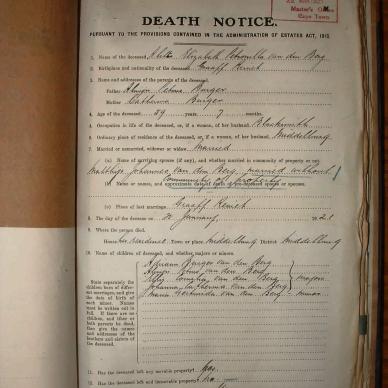 Master's Office
Cape Town
DEATH NOTICE.
PURSUANT TO THE PROVISIONS CONTAINED IN THE ADMINISTRATION OF ESTATES ACT, 1913.
1. Name of the deceased Elizabeth Petronella van den Berg
2. Birthplace and nationality of the deceased Graaff Reinet
3. Names and addresses of the parents of the deceased
Father Burger
Mother Catharina Burger
4. Age of the deceased 59 years 7 months
5. Occupation in life of the deceased, or, if a woman, of her husband Blacksmith
6. Ordinary place of residence of the deceased, or, if a woman, of her husband Middelburg
7. Married or unmarried, widower or widow Married
(a) Name of surviving spouse (if any), and whether married in community of property or not
Matthys Johannes van den Berg, married without
community of property
(b) Name or names, and approximate date of death of pre-deceased spouse or spouses.
(c) Place of last marriage Graaff Reinet
8. The day of the decease on January 1921
9. Where the person died.
House Town or place Middelburg District Middelburg
10. Names of children of deceased, and whether majors or minors.
State separately the
children born of different
marriages, and give
the date of birth of
each minor. Names
must be written out
in full. If there are no
children, and father or
both parents be dead,
then give the names
and addresses of the
brothers and sisters of
the deceased.
Burger van den Berg
van den Berg
van den Berg majors
Johanna Catherina van den Berg
Maria Gertruida van den Berg - minor
11. Has the deceased left any movable property? Yes
12. Has the deceased left any immovable property? No